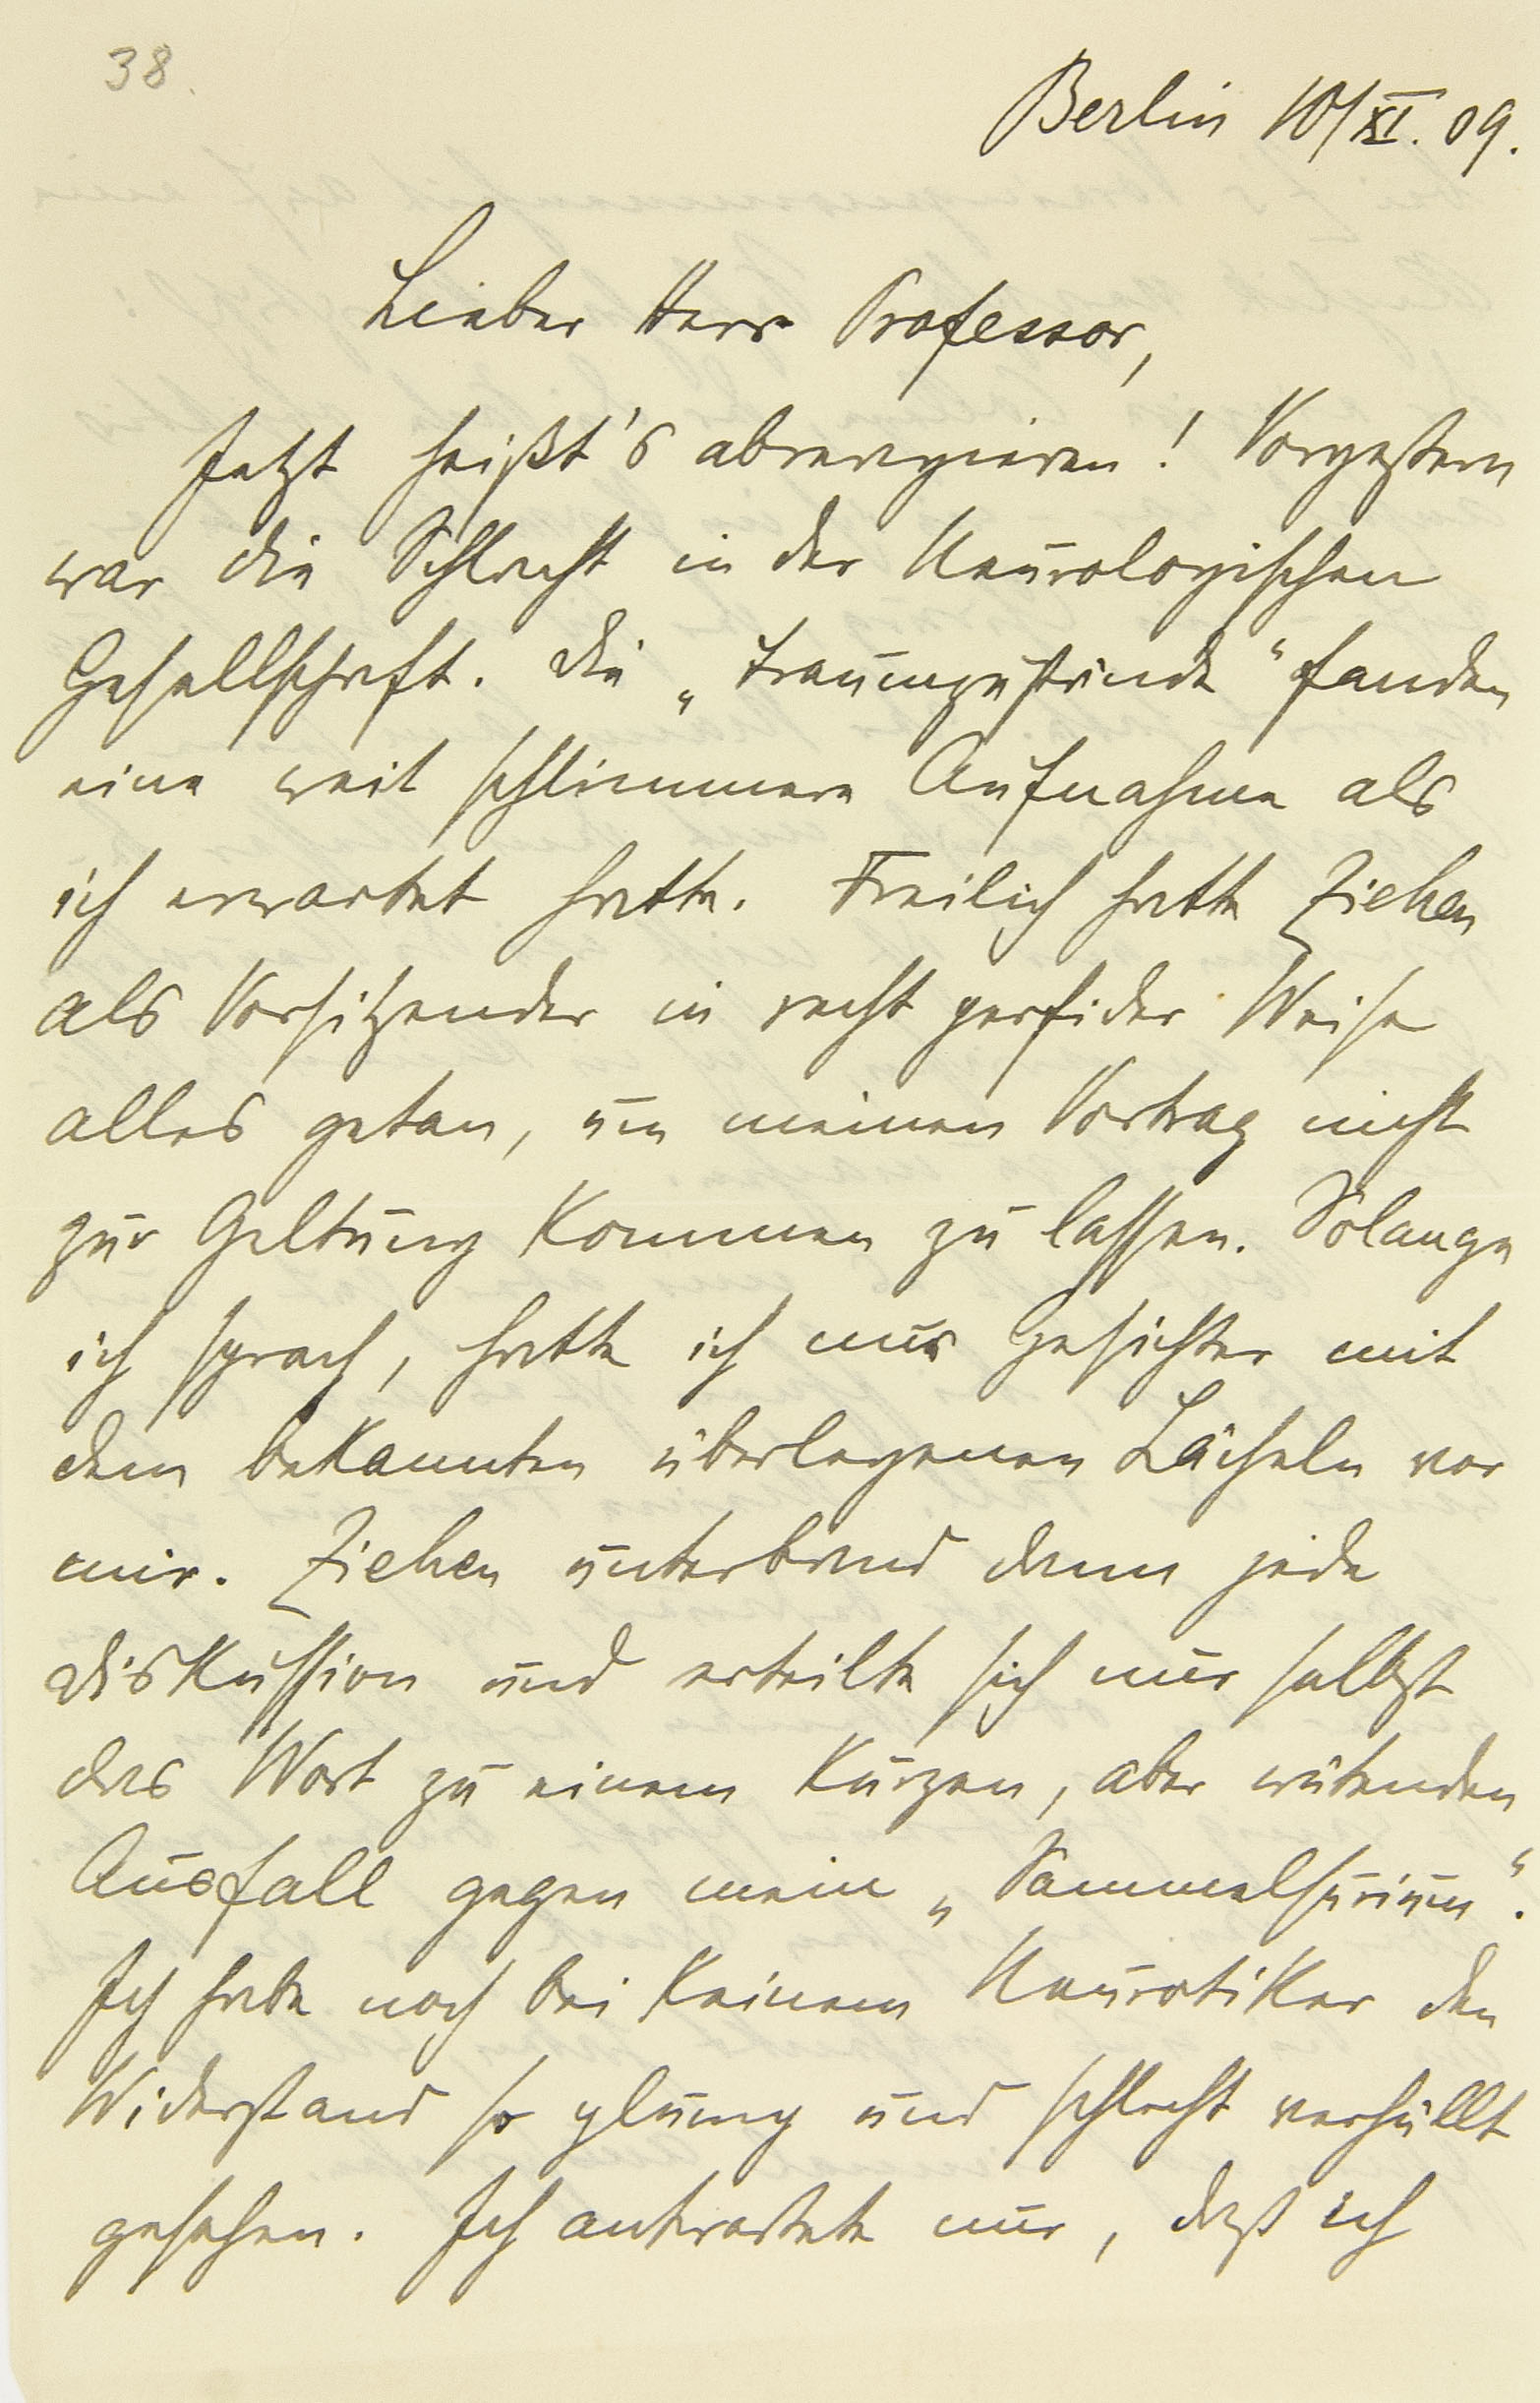 38.
Berlin 10/XI. 09.
Lieber Herr Professor,
Jetzt heißt's abreagieren! Vorgestern
war die Schlacht in der Neurologischen
Gesellschaft. Die „Traumzustände“ fanden
eine weit schlimmere Aufnahme als
ich erwartet hatte. Freilich hatte Ziehen
als Vorsitzender in recht perfider Weise
alles getan, um meinen Vortrag nicht
zur Geltung kommen zu lassen. Solange
ich sprach, hatte ich nur Gesichter mit
dem bekannten überlegenen Lächeln vor
mir. Ziehen unterband dann jede
Diskussion und erteilte sich nur selbst
das Wort zu einem kurzen, aber wütenden
Ausfall gegen mein „Sammelsurium“.
Ich habe noch bei keinem Neurotiker den
Widerstand so plump und schlecht verhüllt
gesehen. Ich antwortete nur, daß ich